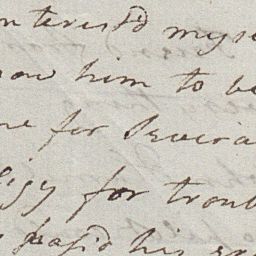 nteres'd myse
now him to be
me for Severa
logy for troub
pass'd his